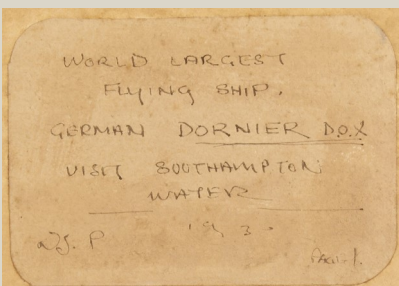 WORLD LARGEST
FLYING SHIP.
GERMAN DORNIER D.O.X
VISIT SOUTHAMPTON
WATER
193
P